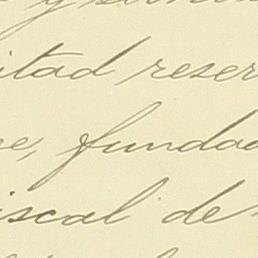 itad reser
e, funda
iscal de